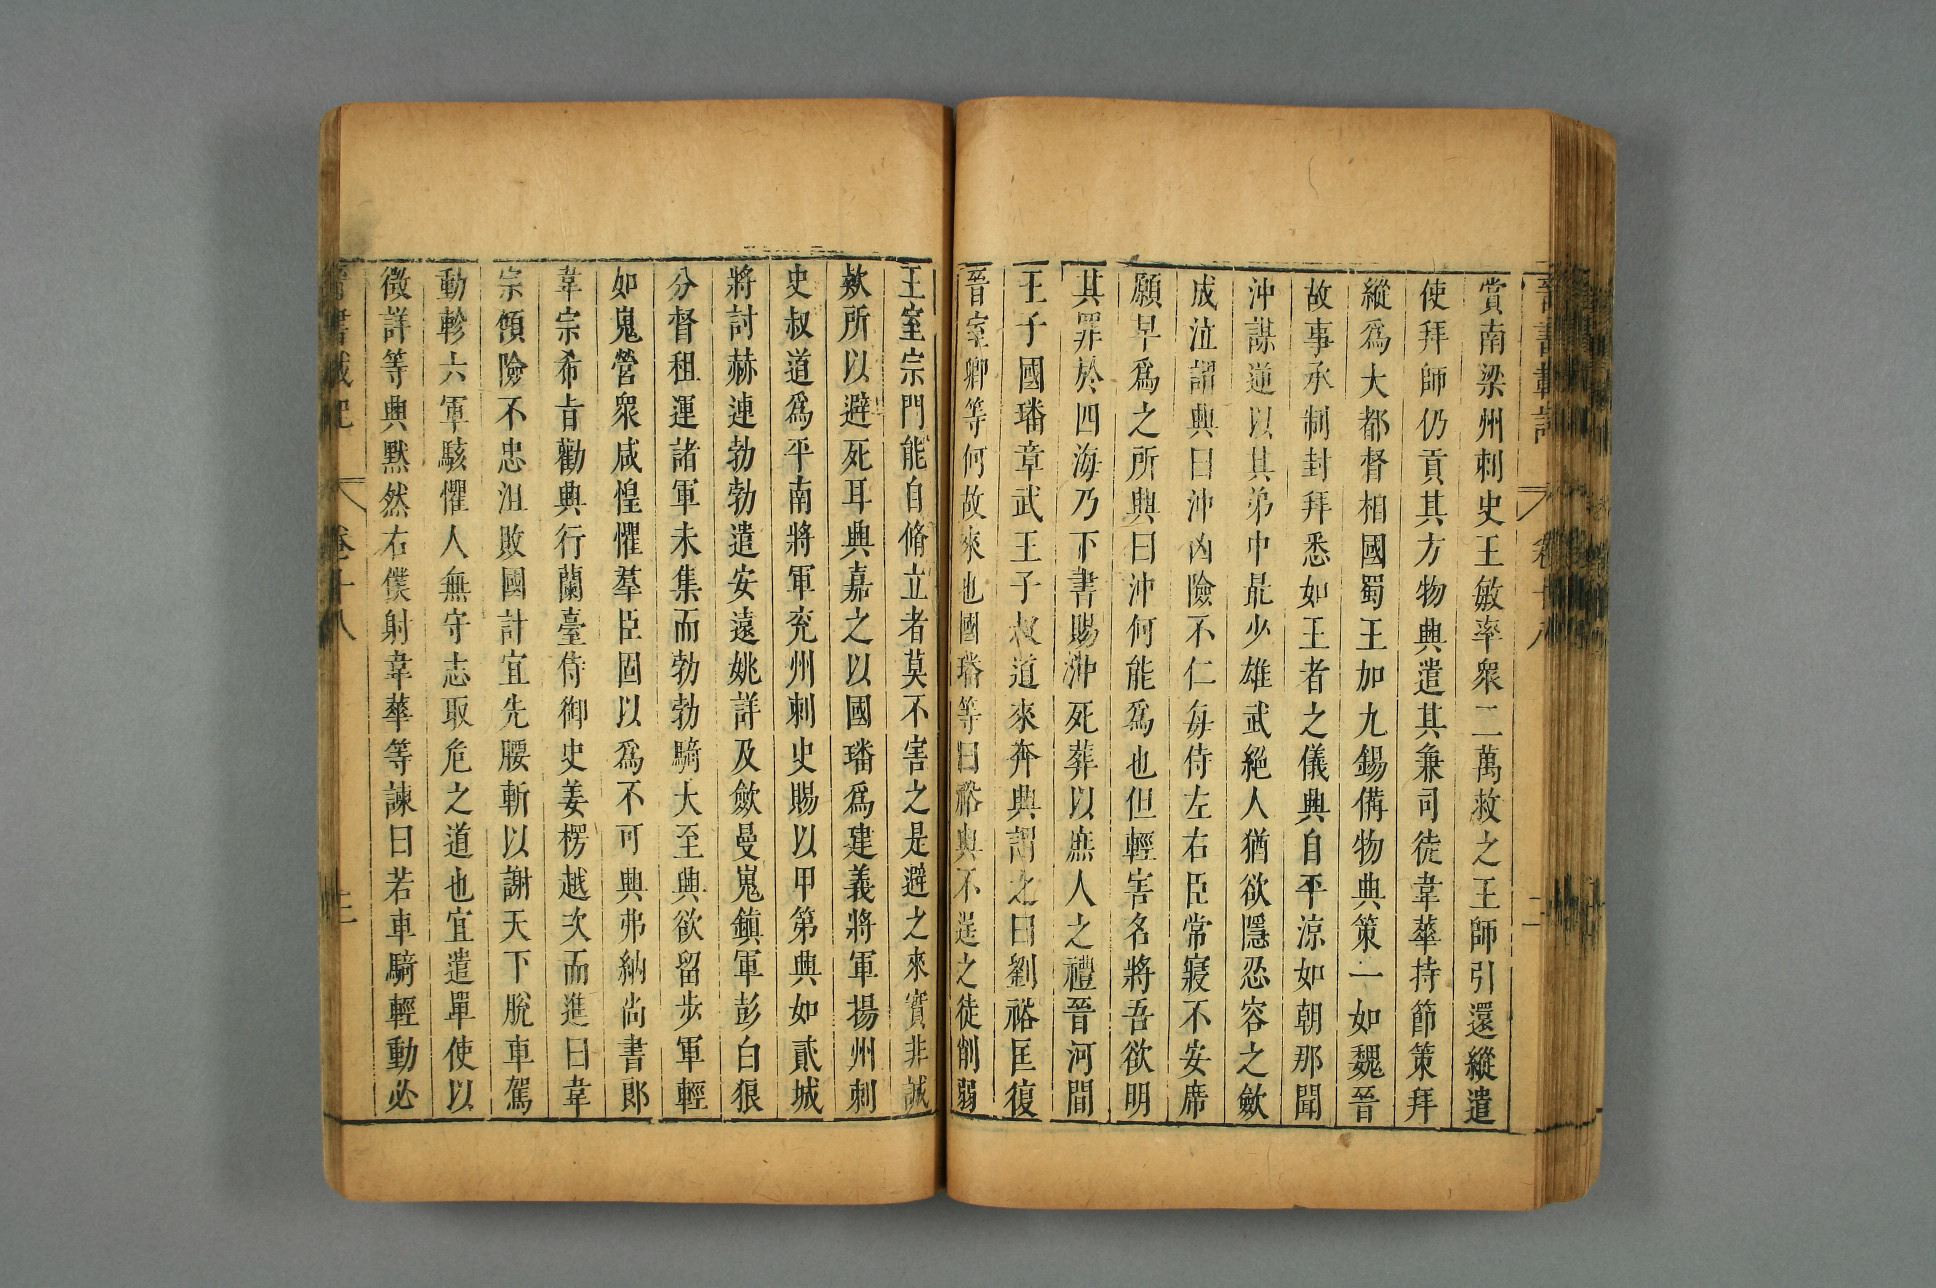 晉書載記 卷十八 二
賞南梁州刺史王敏率衆二萬救之王師引還縱遣
使拜師仍貢其方物興遣其兼司徒韋華持節策拜
縱爲大都督相國蜀王加九錫備物典策一如魏晉
故事承制封拜悉如王者之儀興自平涼如朝那聞
沖謀逆以其弟中最少雄武絕人猶欲隱忍容之歛
成泣謂興曰沖凶險不仁每侍左右臣常寢不安席
願早爲之所興曰沖何能爲也但輕害名將吾欲明
其罪於四海乃下書賜沖死葬以庶人之禮晉河間
王子國璠章武王子叔道來奔興謂之曰劉裕匡復
晉室卿等何故來也國璠等曰裕與不逞之徒削弱
王室宗門能自脩立者莫不害之是避之來實非誠
款所以避死耳興嘉之以國璠爲建義將軍揚州刺
史叔道爲平南將軍兖州刺史賜以甲第興如貳城
將討赫連勃勃遣安遠姚詳及歛曼嵬鎮軍彭白狼
分督租運諸軍未集而勃勃騎大至興欲留步軍輕
如嵬營衆咸惶懼羣臣固以爲不可興弗納尚書郎
韋宗希旨勸興行蘭臺侍御史姜楞越次而進曰韋
宗傾險不忠沮敗國計宜先腰斬以謝天下脫車駕
動軫六軍駭懼人無守志取危之道也宜遣單使以
徵詳等興默然右僕射韋華等諫曰若車騎輕動必
晉書載記 卷十八 三